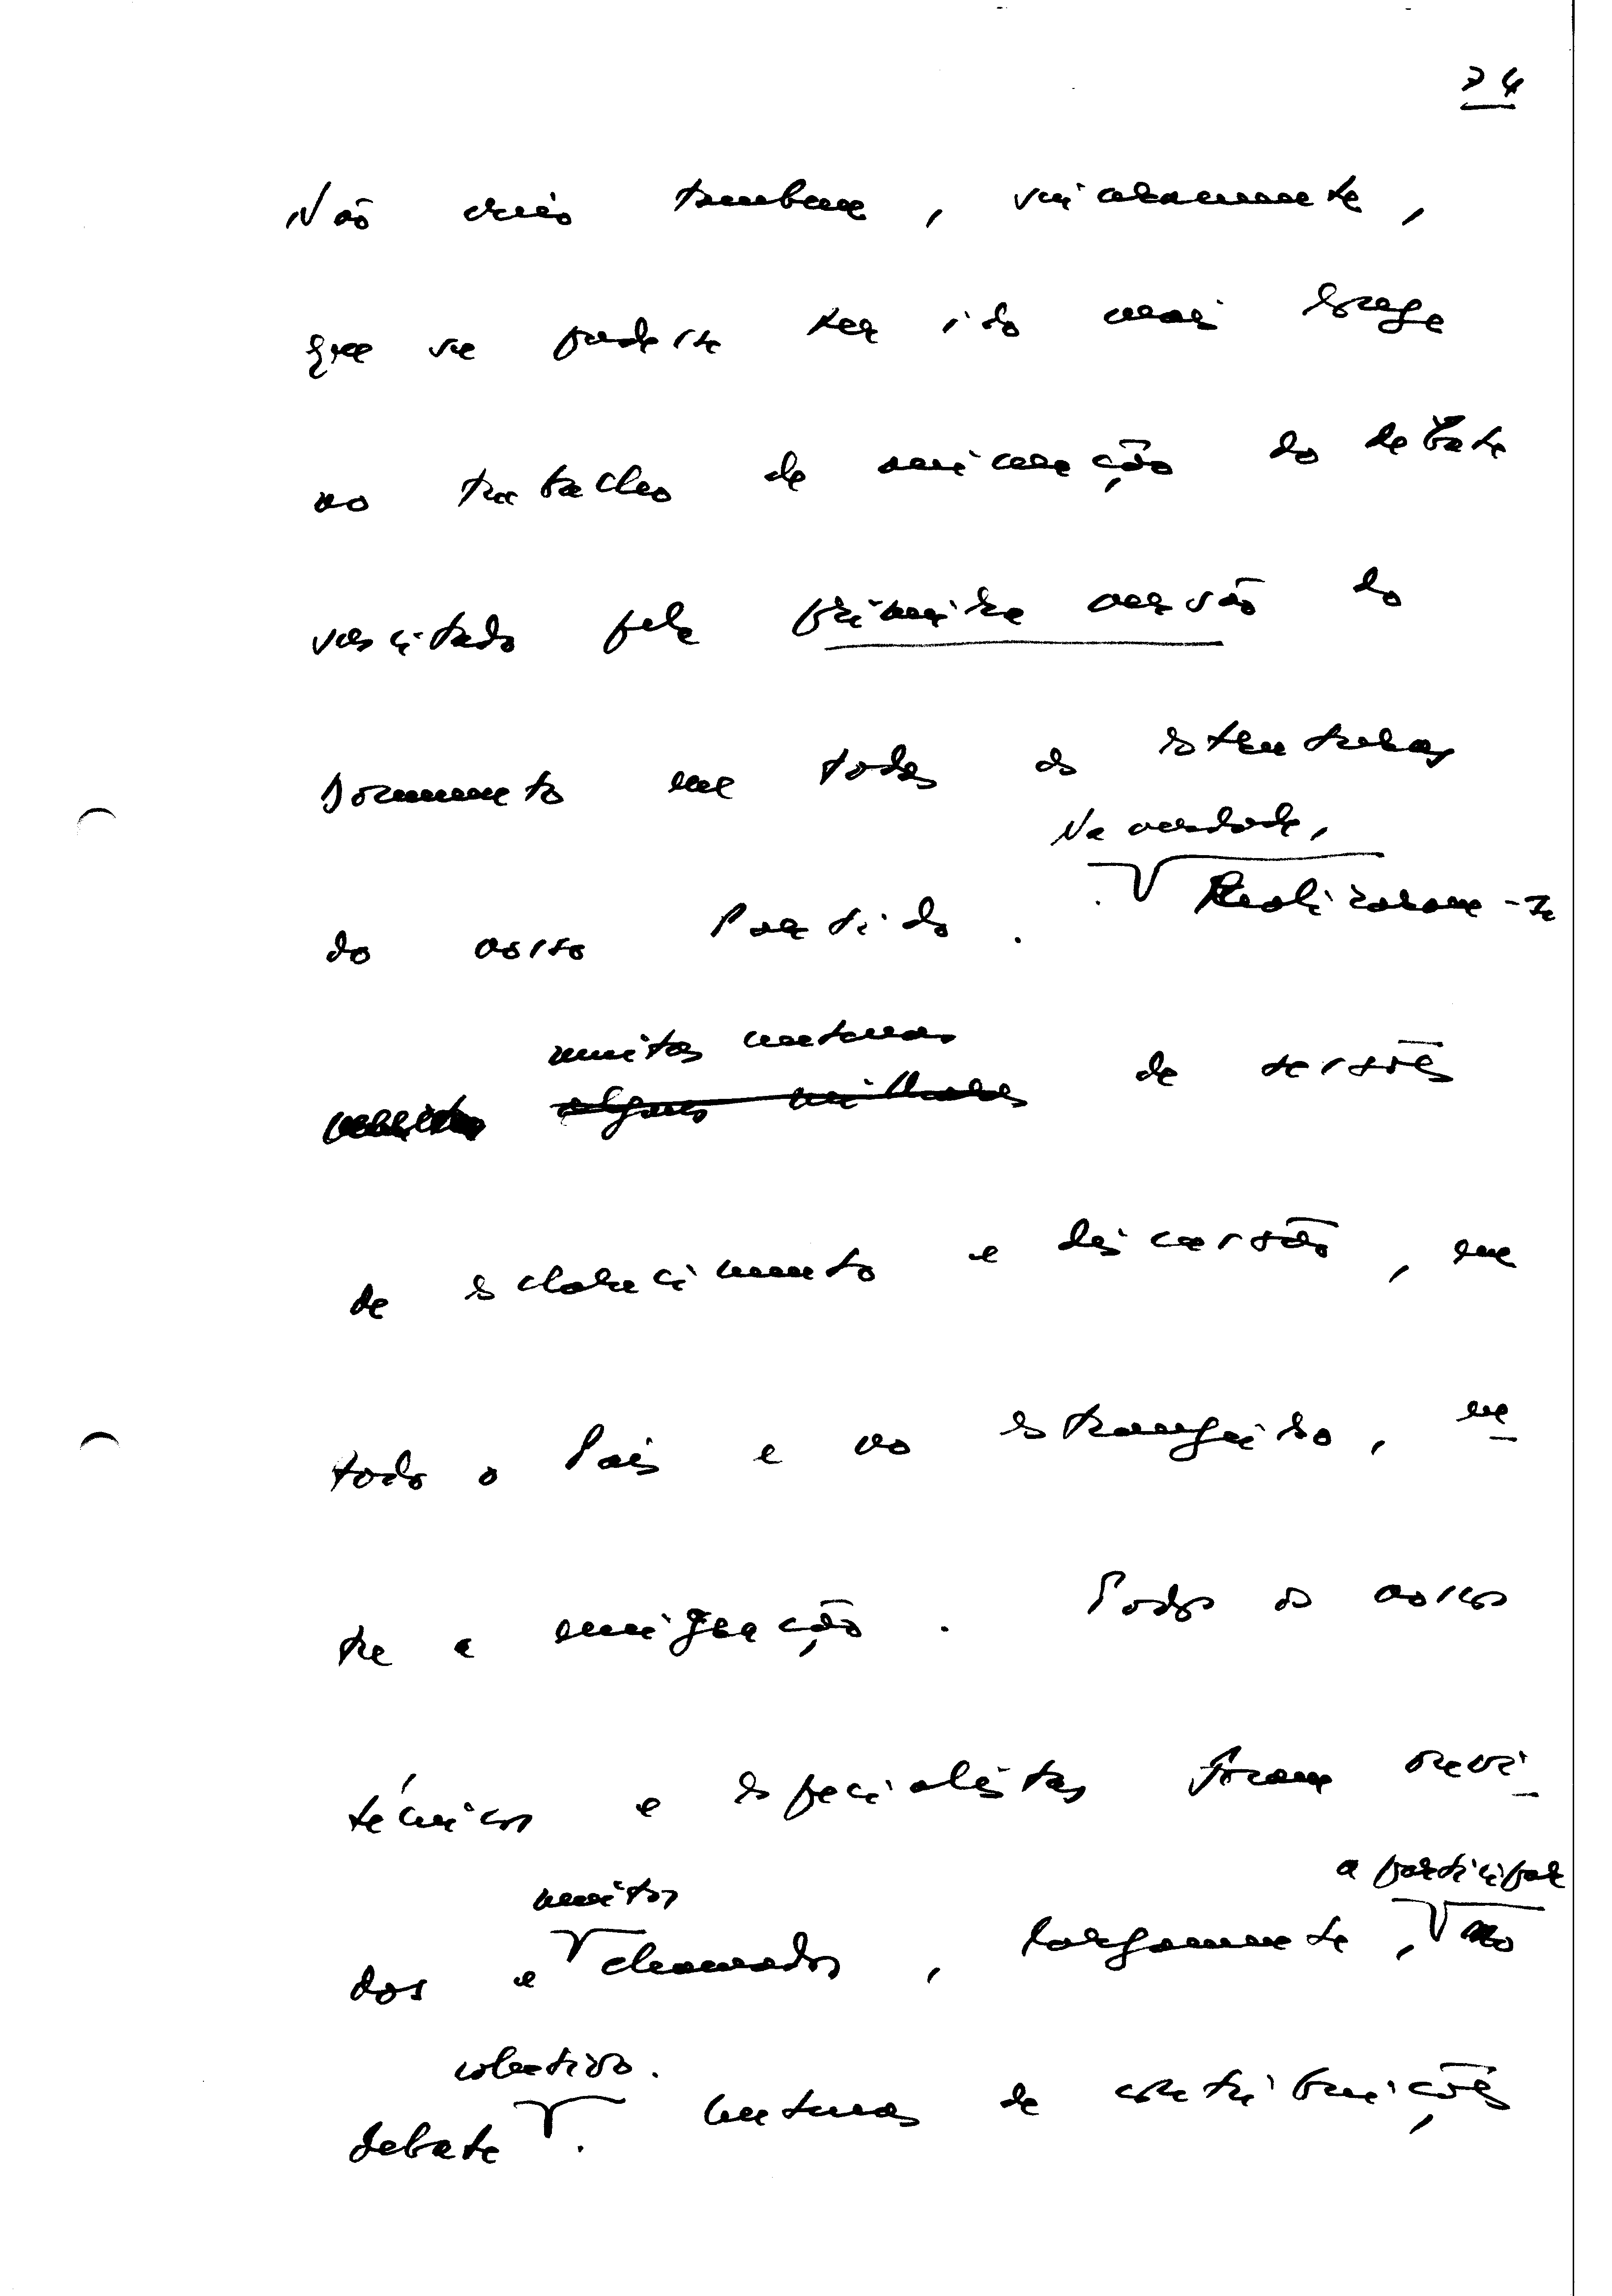 24
Não creio também, sinceramente,
que se pudesse ter ido mais longe
no trabalho de animação do debate
suscitado pela primeira versão do
Documento em todas as estruturas
Na verdade,
do nosso Partido. Realizaram-se
muitas centenas
alguns milhares de sessões
de esclarecimento e discussão, em
todo o País e no estrangeiro, en
tre a emigração. Todos os nossos
técnicos e especialistas foram ouvi-
muitos a participar
dos e chamados, largamente, no
colectivo.
debate. Centenas de contribuições